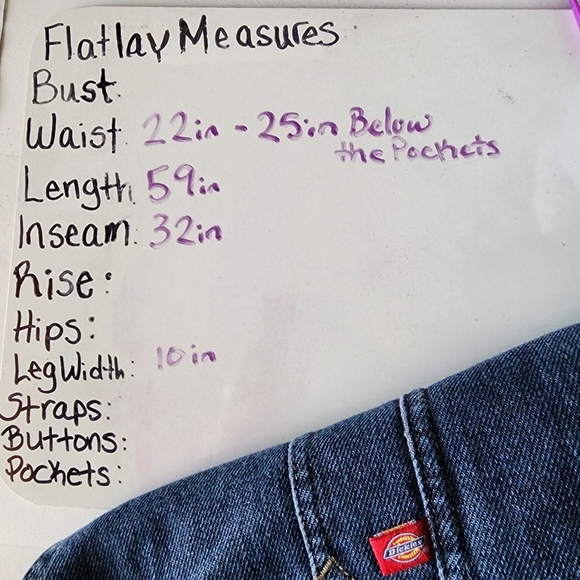 Flatlay Measures
Bust:
Waist: 22in - 25in Below
the Pockets
Length: 59in
Inseam: 32in
Rise:
Hips:
Leg Width: 10in
Straps:
Buttons:
Pockets:
Dickies